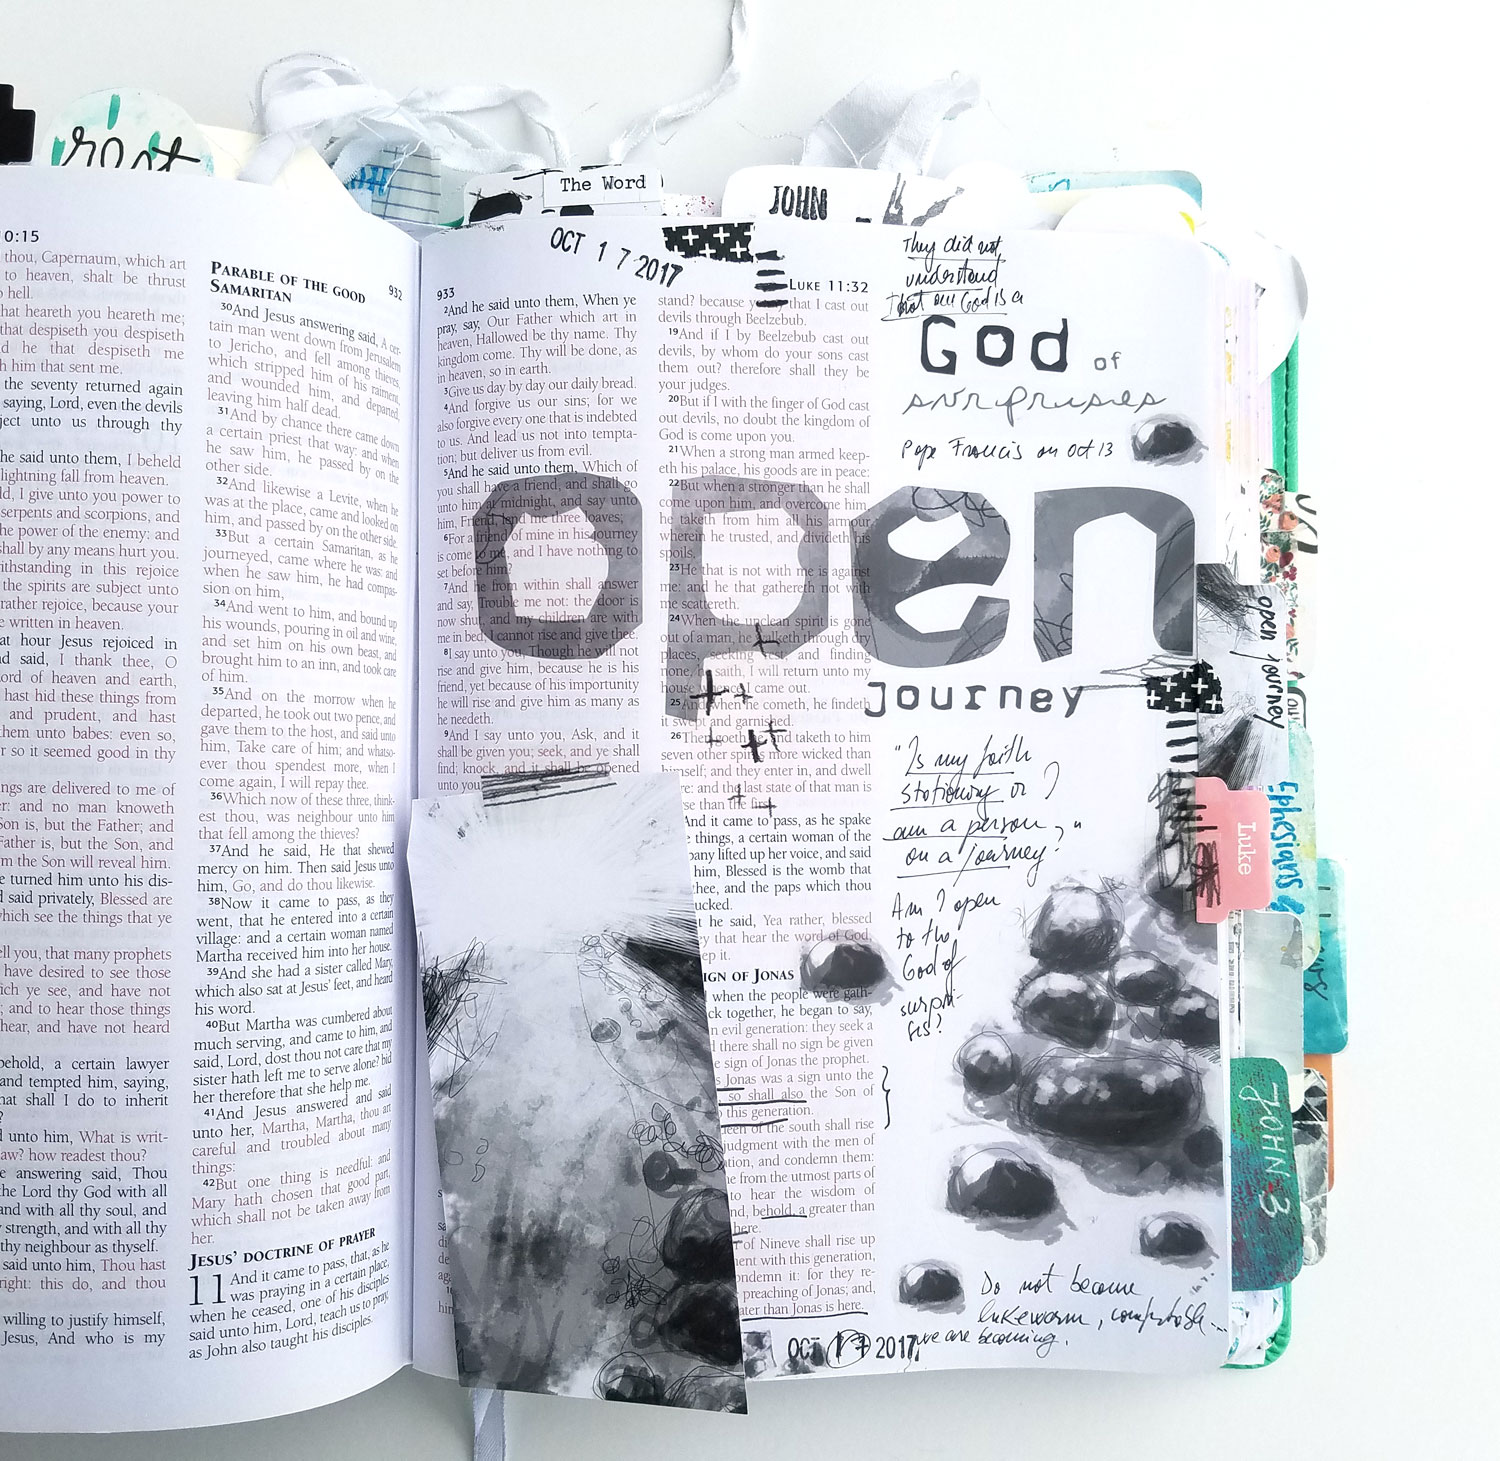 root
The Word
JOHN
0:15
thou, Capernaum, which art
to heaven, shalt be thrust
hell.
that heareth you heareth me;
that despiseth you despiseth
he that despiseth me
him that sent me.
the seventy returned again
saying, Lord, even the devils
ject unto us through thy
he said unto them, I beheld
lightning fall from heaven.
ld, I give unto you power to
serpents and scorpions, and
he power of the enemy: and
shall by any means hurt you.
ithstanding in this rejoice
the spirits are subject unto
rather rejoice, because your
e written in heaven.
at hour Jesus rejoiced in
nd said, I thank thee, O
ord of heaven and earth,
hast hid these things from
and prudent, and hast
them unto babes: even so,
r so it seemed good in thy
ngs are delivered to me of
er: and no man knoweth
Son is, but the Father; and
Father is, but the Son, and
m the Son will reveal him.
e turned him unto his dis-
d said privately, Blessed are
which see the things that ye
ell you, that many prophets
have desired to see those
ich ye see, and have not
; and to hear those things
hear, and have not heard
behold, a certain lawyer
and tempted him, saying,
hat shall I do to inherit
?
d unto him, What is writ-
aw? how readest thou?
e answering said, Thou
the Lord thy God with all
and with all thy soul, and
strength, and with all thy
thy neighbour as thyself.
said unto him, Thou hast
right: this do, and thou
willing to justify himself,
Jesus, And who is my
PARABLE OF THE GOOD
SAMARITAN
932
30And Jesus answering said, A cer-
tain man went down from Jerusalem
to Jericho, and fell among thieves,
which stripped him of his raiment,
and wounded him, and departed,
leaving him half dead.
31And by chance there came down
a certain priest that way: and when
he saw him, he passed by on the
other side.
32And likewise a Levite, when he
was at the place, came and looked on
him, and passed by on the other side.
33But a certain Samaritan, as he
journeyed, came where he was: and
when he saw him, he had compas-
sion on him,
34And went to him, and bound up
his wounds, pouring in oil and wine,
and set him on his own beast, and
brought him to an inn, and took care
of him.
35And on the morrow when he
departed, he took out two pence, and
gave them to the host, and said unto
him, Take care of him; and whatso-
ever thou spendest more, when I
come again, I will repay thee.
36Which now of these three, think-
est thou, was neighbour unto him
that fell among the thieves?
37And he said, He that shewed
mercy on him. Then said Jesus unto
him, Go, and do thou likewise.
38Now it came to pass, as they
went, that he entered into a certain
village: and a certain woman named
Martha received him into her house.
39And she had a sister called Mary,
which also sat at Jesus' feet, and heard
his word.
40But Martha was cumbered about
much serving, and came to him, and
said, Lord, dost thou not care that my
sister hath left me to serve alone? bid
her therefore that she help me.
41And Jesus answered and said
unto her, Martha, Martha, thou art
careful and troubled about many
things:
42But one thing is needful: and
Mary hath chosen that good part,
which shall not be taken away from
her.
JESUS' DOCTRINE OF PRAYER
11 And it came to pass, that, as he
was praying in a certain place,
when he ceased, one of his disciples
said unto him, Lord, teach us to pray,
as John also taught his disciples.
OCT 17 2017
933
2And he said unto them, When ye
pray, say, Our Father which art in
heaven, Hallowed be thy name. Thy
kingdom come. Thy will be done, as
in heaven, so in earth.
3Give us day by day our daily bread.
4And forgive us our sins; for we
also forgive every one that is indebted
to us. And lead us not into tempta-
tion; but deliver us from evil.
5And he said unto them, Which of
you shall have a friend, and shall go
unto him at midnight, and say unto
him, Friend, lend me three loaves;
6For a friend of mine in his journey
is come to me, and I have nothing to
set before him?
7And he from within shall answer
and say, Trouble me not: the door is
now shut, and my children are with
me in bed; I cannot rise and give thee.
8I say unto you, Though he will not
rise and give him, because he is his
friend, yet because of his importunity
he will rise and give him as many as
he needeth.
9And I say unto you, Ask, and it
shall be given you; seek, and ye shall
find; knock, and it shall be opened
unto you
LUKE 11:32
stand? because ye say that I cast out
devils through Beelzebub.
19And if I by Beelzebub cast out
devils, by whom do your sons cast
them out? therefore shall they be
your judges.
20But if I with the finger of God cast
out devils, no doubt the kingdom of
God is come upon you.
21When a strong man armed keep-
eth his palace, his goods are in peace:
22But when a stronger than he shall
come upon him, and overcome him,
he taketh from him all his armour
wherein he trusted, and divideth his
spoils.
23He that is not with me is against
me: and he that gathereth not with
me scattereth.
24When the unclean spirit is gone
out of a man, he walketh through dry
places, seeking rest; and finding
none, he saith, I will return unto my
house whence I came out.
25And when he cometh, he findeth
it swept and garnished.
26Then goeth he, and taketh to him
seven other spirits more wicked than
himself; and they enter in, and dwell
re: and the last state of that man is
se than the first.
And it came to pass, as he spake
e things, a certain woman of the
pany lifted up her voice, and said
him, Blessed is the womb that
thee, and the paps which thou
ucked.
t he said, Yea rather, blessed
ey that hear the word of God,
ep it.
IGN OF JONAS
when the people were gath-
ck together, he began to say,
n evil generation: they seek a
d there shall no sign be given
e sign of Jonas the prophet.
s Jonas was a sign unto the
so shall also the Son of
this generation.
ueen of the south shall rise
judgment with the men of
tion, and condemn them:
e from the utmost parts of
to hear the wisdom of
nd, behold, a greater than
here.
of Nineve shall rise up
ent with this generation,
ondemn it: for they re-
preaching of Jonas; and,
ater than Jonas is here.
They did not
understand
that our God is a
God of
surprises
Pope Francis on Oct 13
open
journey
"Is my faith
stationary or ?
am a person
on a journey?"
Am I open
to the
God of
surpri-
ses?
Do not become
lukewarm, comfortable...
we are becoming.
OCT 17 2017
open journey
Luke
Ephesians
JOHN 3